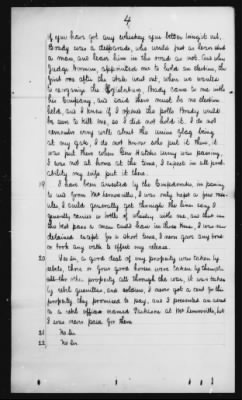 4
if you have got any whiskey you better bring it out,
Brady was a desperado, who would just as leave shoot
a man, and leave him in the road as not. Any why
Judge appointed me to hold an election, the
first one after the State went out, when we wanted
to reorganize the Legislature, Brady came to me with
his Company, and said there must be no election
held, and I knew if I opened the polls Brady would
be sure to kill me, so I did not hold it. I do not
remember very well about the union flag being
at my gate, I do not know who put it there, it
was put there when the army was passing,
I was not at home at the time, I expect in all prob-
ability my wife put it there.
19 I have been arrested by the Confederates, in passing
to and from Mt
I could generally get through the lines easy I
generally carried a bottle of whiskey with me, and that was
the best pass a man could have in those times, I was never
detained except for a short time, I never gave any bond
or took any oath to effect my release.
20 Yes Sir, a good deal of my property was taken by
rebels, three or four good horses were taken by them
all the other property all through the war, it was taken
by rebel guerillas, and soldiers, I never got a cent for the
property they promised to pay, and I presented an account
to a rebel officer named at Mt but
I was never paid for them
21 No Sir
22 No Sir